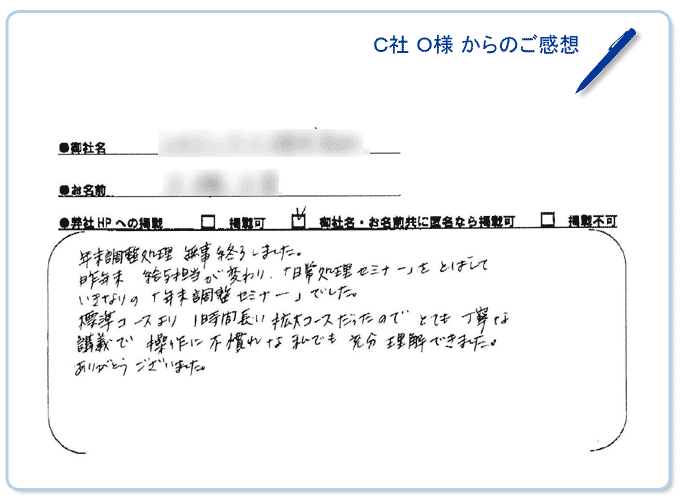 C社 O様 からのご感想
●御社名
●お名前
●弊社HPへの掲載 □ 掲載可 ☑ 御社名・お名前共に匿名なら掲載可 □ 掲載不可
年末調整処理 無事終了しました。
昨年末 給与担当が変わり、「日常処理セミナー」をとばして
いきなりの「年末調整セミナー」でした。
標準コースより 1時間長い拡大コースだったので とても丁寧な
講義で 操作に不慣れな私でも 充分理解できました。
ありがとうございました。